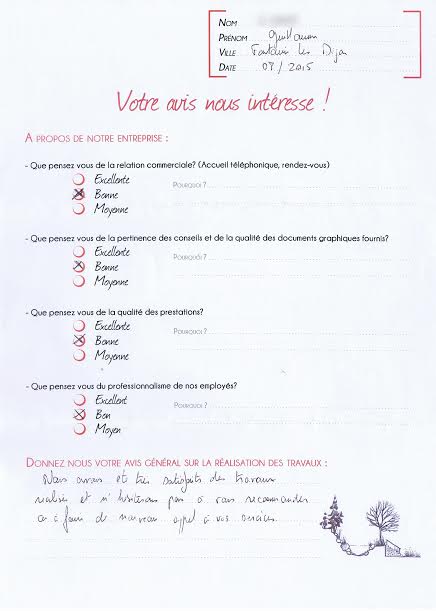 NOM
PRÉNOM Guillaume
VILLE Fontaine les Dijon
DATE 07 / 2015
Votre avis nous intéresse !
A PROPOS DE NOTRE ENTREPRISE :
- Que pensez vous de la relation commerciale? (Accueil téléphonique, rendez-vous)
Excellente
POURQUOI ?
Bonne
Moyenne
- Que pensez vous de la pertinence des conseils et de la qualité des documents graphiques fournis?
Excellente
POURQUOI ?
Bonne
Moyenne
- Que pensez vous de la qualité des prestations?
Excellente
POURQUOI ?
Bonne
Moyenne
- Que pensez vous du professionnalisme de nos employés?
Excellent
POURQUOI ?
Bon
Moyen
DONNEZ NOUS VOTRE AVIS GÉNÉRAL SUR LA RÉALISATION DES TRAVAUX :
Nous avons été très satisfaits des travaux
réalisés et n'hésiterons pas à vous recommander
ou à faire de nouveau appel à vos services.